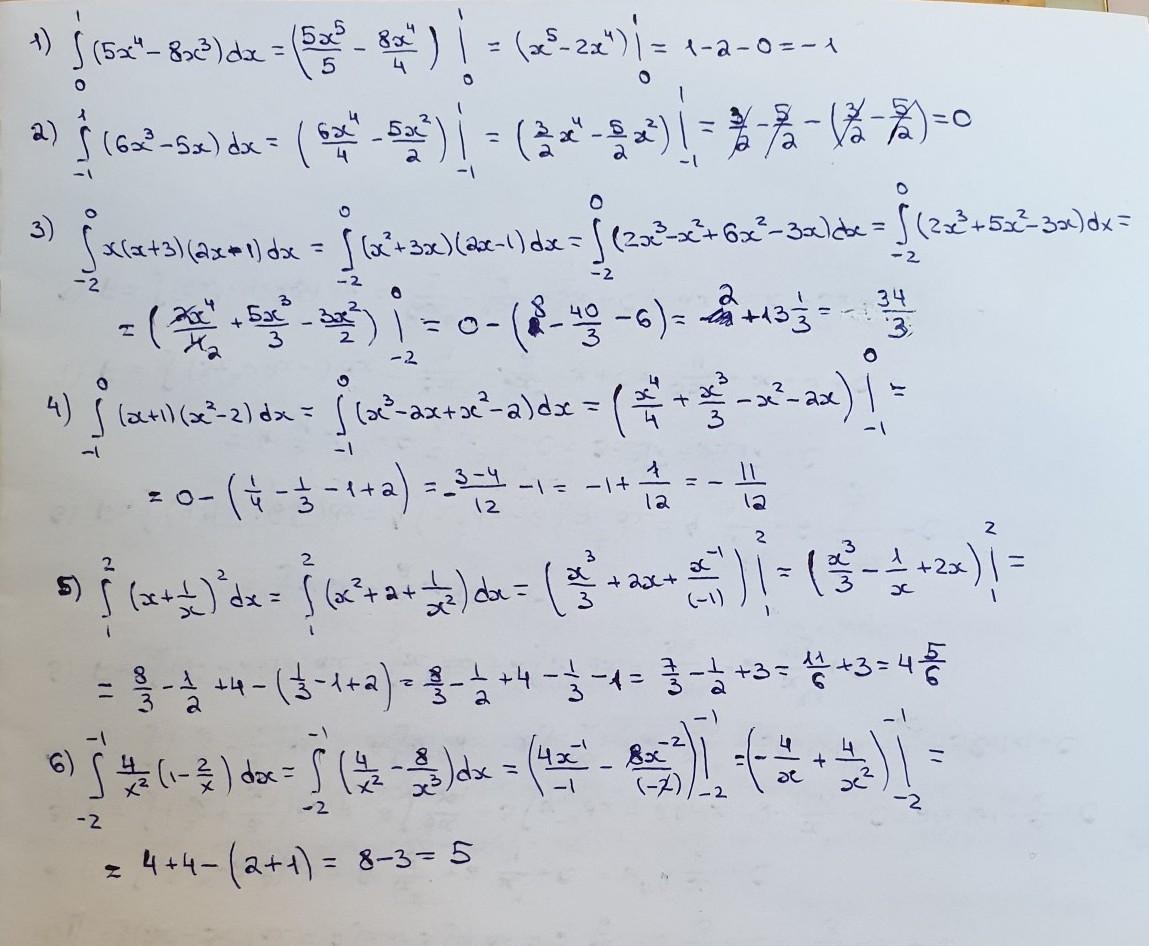 1) ∫₀¹ (5x⁴ − 8x³) dx = (5x⁵/5 − 8x⁴/4) |₀¹ = (x⁵ − 2x⁴) |₀¹ = 1 − 2 − 0 = −1
2) ∫₋₁¹ (6x³ − 5x) dx = (6x⁴/4 − 5x²/2) |₋₁¹ = (3/2 x⁴ − 5/2 x²) |₋₁¹ = 3/2 − 5/2 − (3/2 − 5/2) = 0
3) ∫₋₂⁰ x(x+3)(2x−1) dx = ∫₋₂⁰ (x²+3x)(2x−1) dx = ∫₋₂⁰ (2x³−x²+6x²−3x) dx = ∫₋₂⁰ (2x³+5x²−3x) dx =
= (2x⁴/4₂ + 5x³/3 − 3x²/2) |₋₂⁰ = 0 − (8 − 40/3 − 6) = −2 + 13 1/3 = 34/3
4) ∫₋₁⁰ (x+1)(x²−2) dx = ∫₋₁⁰ (x³−2x+x²−2) dx = (x⁴/4 + x³/3 − x² − 2x) |₋₁⁰ =
= 0 − (1/4 − 1/3 − 1 + 2) = −(3−4)/12 − 1 = −1 + 1/12 = − 11/12
5) ∫₁² (x + 1/x)² dx = ∫₁² (x² + 2 + 1/x²) dx = (x³/3 + 2x + x⁻¹/(−1)) |₁² = (x³/3 − 1/x + 2x) |₁² =
= 8/3 − 1/2 + 4 − (1/3 − 1 + 2) = 8/3 − 1/2 + 4 − 1/3 − 1 = 7/3 − 1/2 + 3 = 11/6 + 3 = 4 5/6
6) ∫₋₂⁻¹ 4/x² (1 − 2/x) dx = ∫₋₂⁻¹ (4/x² − 8/x³) dx = (4x⁻¹/−1 − 8x⁻²/(−2)) |₋₂⁻¹ = (−4/x + 4/x²) |₋₂⁻¹ =
= 4 + 4 − (2 + 1) = 8 − 3 = 5